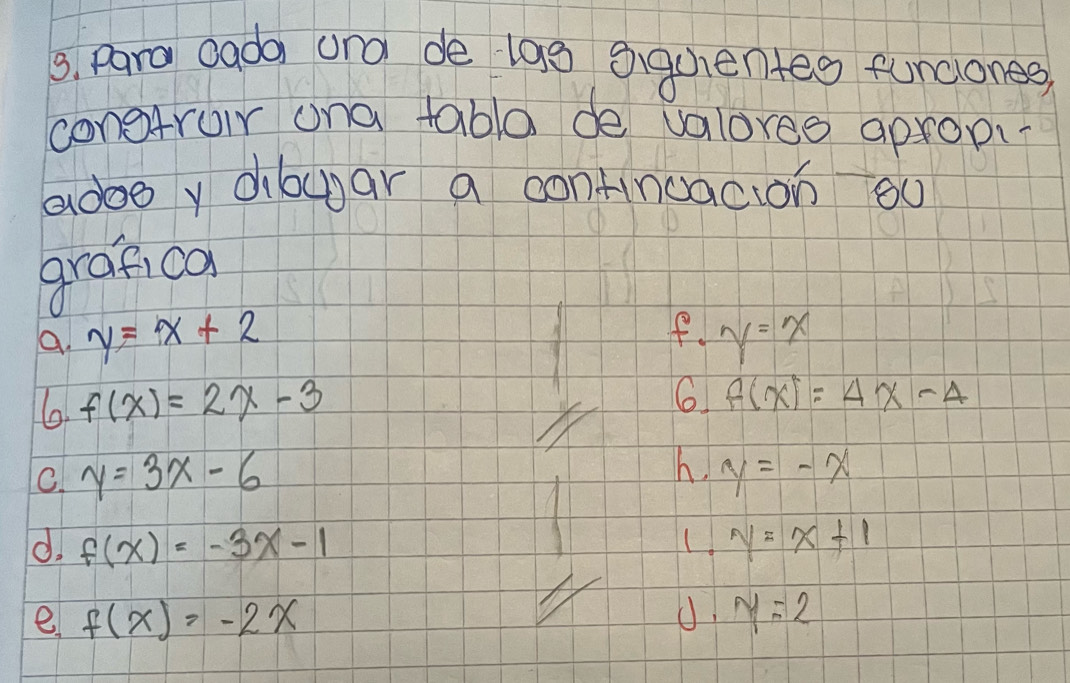 3. Para cada una de las siguientes funciones,
construir una tabla de valores apropi-
ados y dibujar a continuación su
gráfica
a. y = x + 2
b. f(x) = 2x - 3
c. y = 3x - 6
d. f(x) = -3x - 1
e. f(x) = -2x
f. y = x
G. f(x) = 4x - 4
h. y = - x
i. y = x + 1
J. y = 2